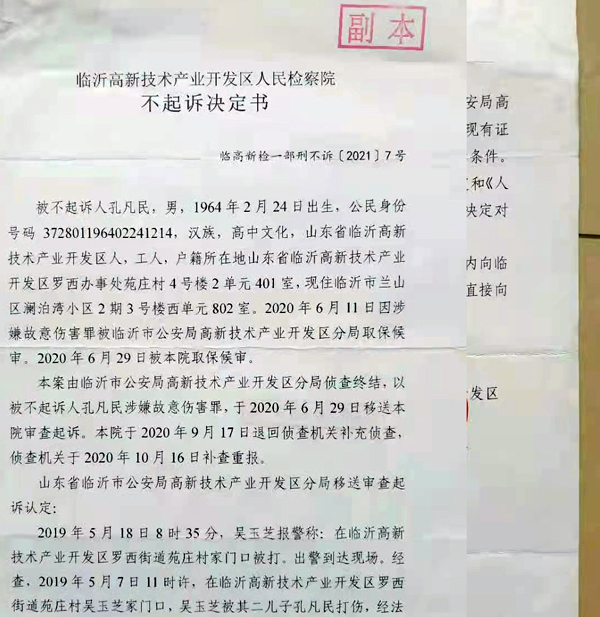 副本
临沂高新技术产业开发区人民检察院
不起诉决定书
临高新检一部刑不诉〔2021〕7号
被不起诉人孔凡民，男，1964年2月24日出生，公民身份
号码 372801196402241214，汉族，高中文化，山东省临沂高新
技术产业开发区人，工人，户籍所在地山东省临沂高新技术产业
开发区罗西办事处苑庄村4号楼2单元401室，现住临沂市兰山
区澜泊湾小区2期3号楼西单元802室。2020年6月11日因涉
嫌故意伤害罪被临沂市公安局高新技术产业开发区分局取保候
审。2020年6月29日被本院取保候审。
本案由临沂市公安局高新技术产业开发区分局侦查终结，以
被不起诉人孔凡民涉嫌故意伤害罪，于2020年6月29日移送本
院审查起诉。本院于2020年9月17日退回侦查机关补充侦查，
侦查机关于2020年10月16日补查重报。
山东省临沂市公安局高新技术产业开发区分局移送审查起
诉认定：
2019年5月18日8时35分，吴玉芝报警称：在临沂高新
技术产业开发区罗西街道苑庄村家门口被打。出警到达现场。经
查，2019年5月7日11时许，在临沂高新技术产业开发区罗西
街道苑庄村吴玉芝家门口，吴玉芝被其二儿子孔凡民打伤，经法
安局高
现有证
条件。
和《人
决定对
内向临
直接向
发区